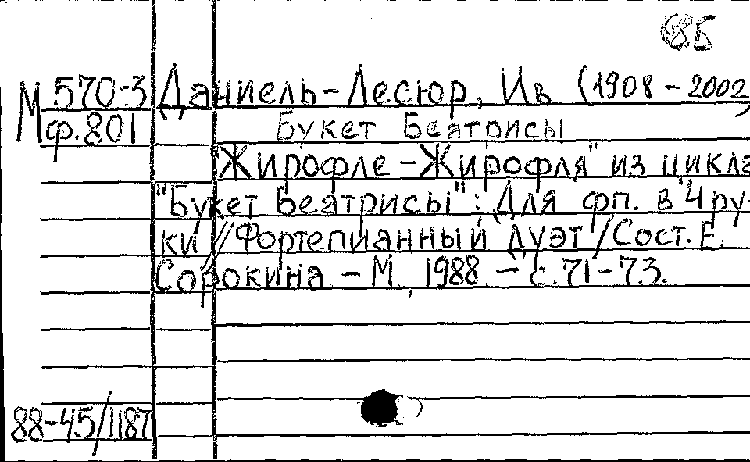 685
М 570-3 Даниель-Лесюр, Ив (1908-2002)
ф.801 Букет Беатрисы
"Жирофле-Жирофля" из цикла
"Букет Беатрисы": Для фп. в 4 ру-
ки // Фортепианный дуэт / Сост. Е.
Сорокина - М., 1988. - с.71-73.
88-45/1187